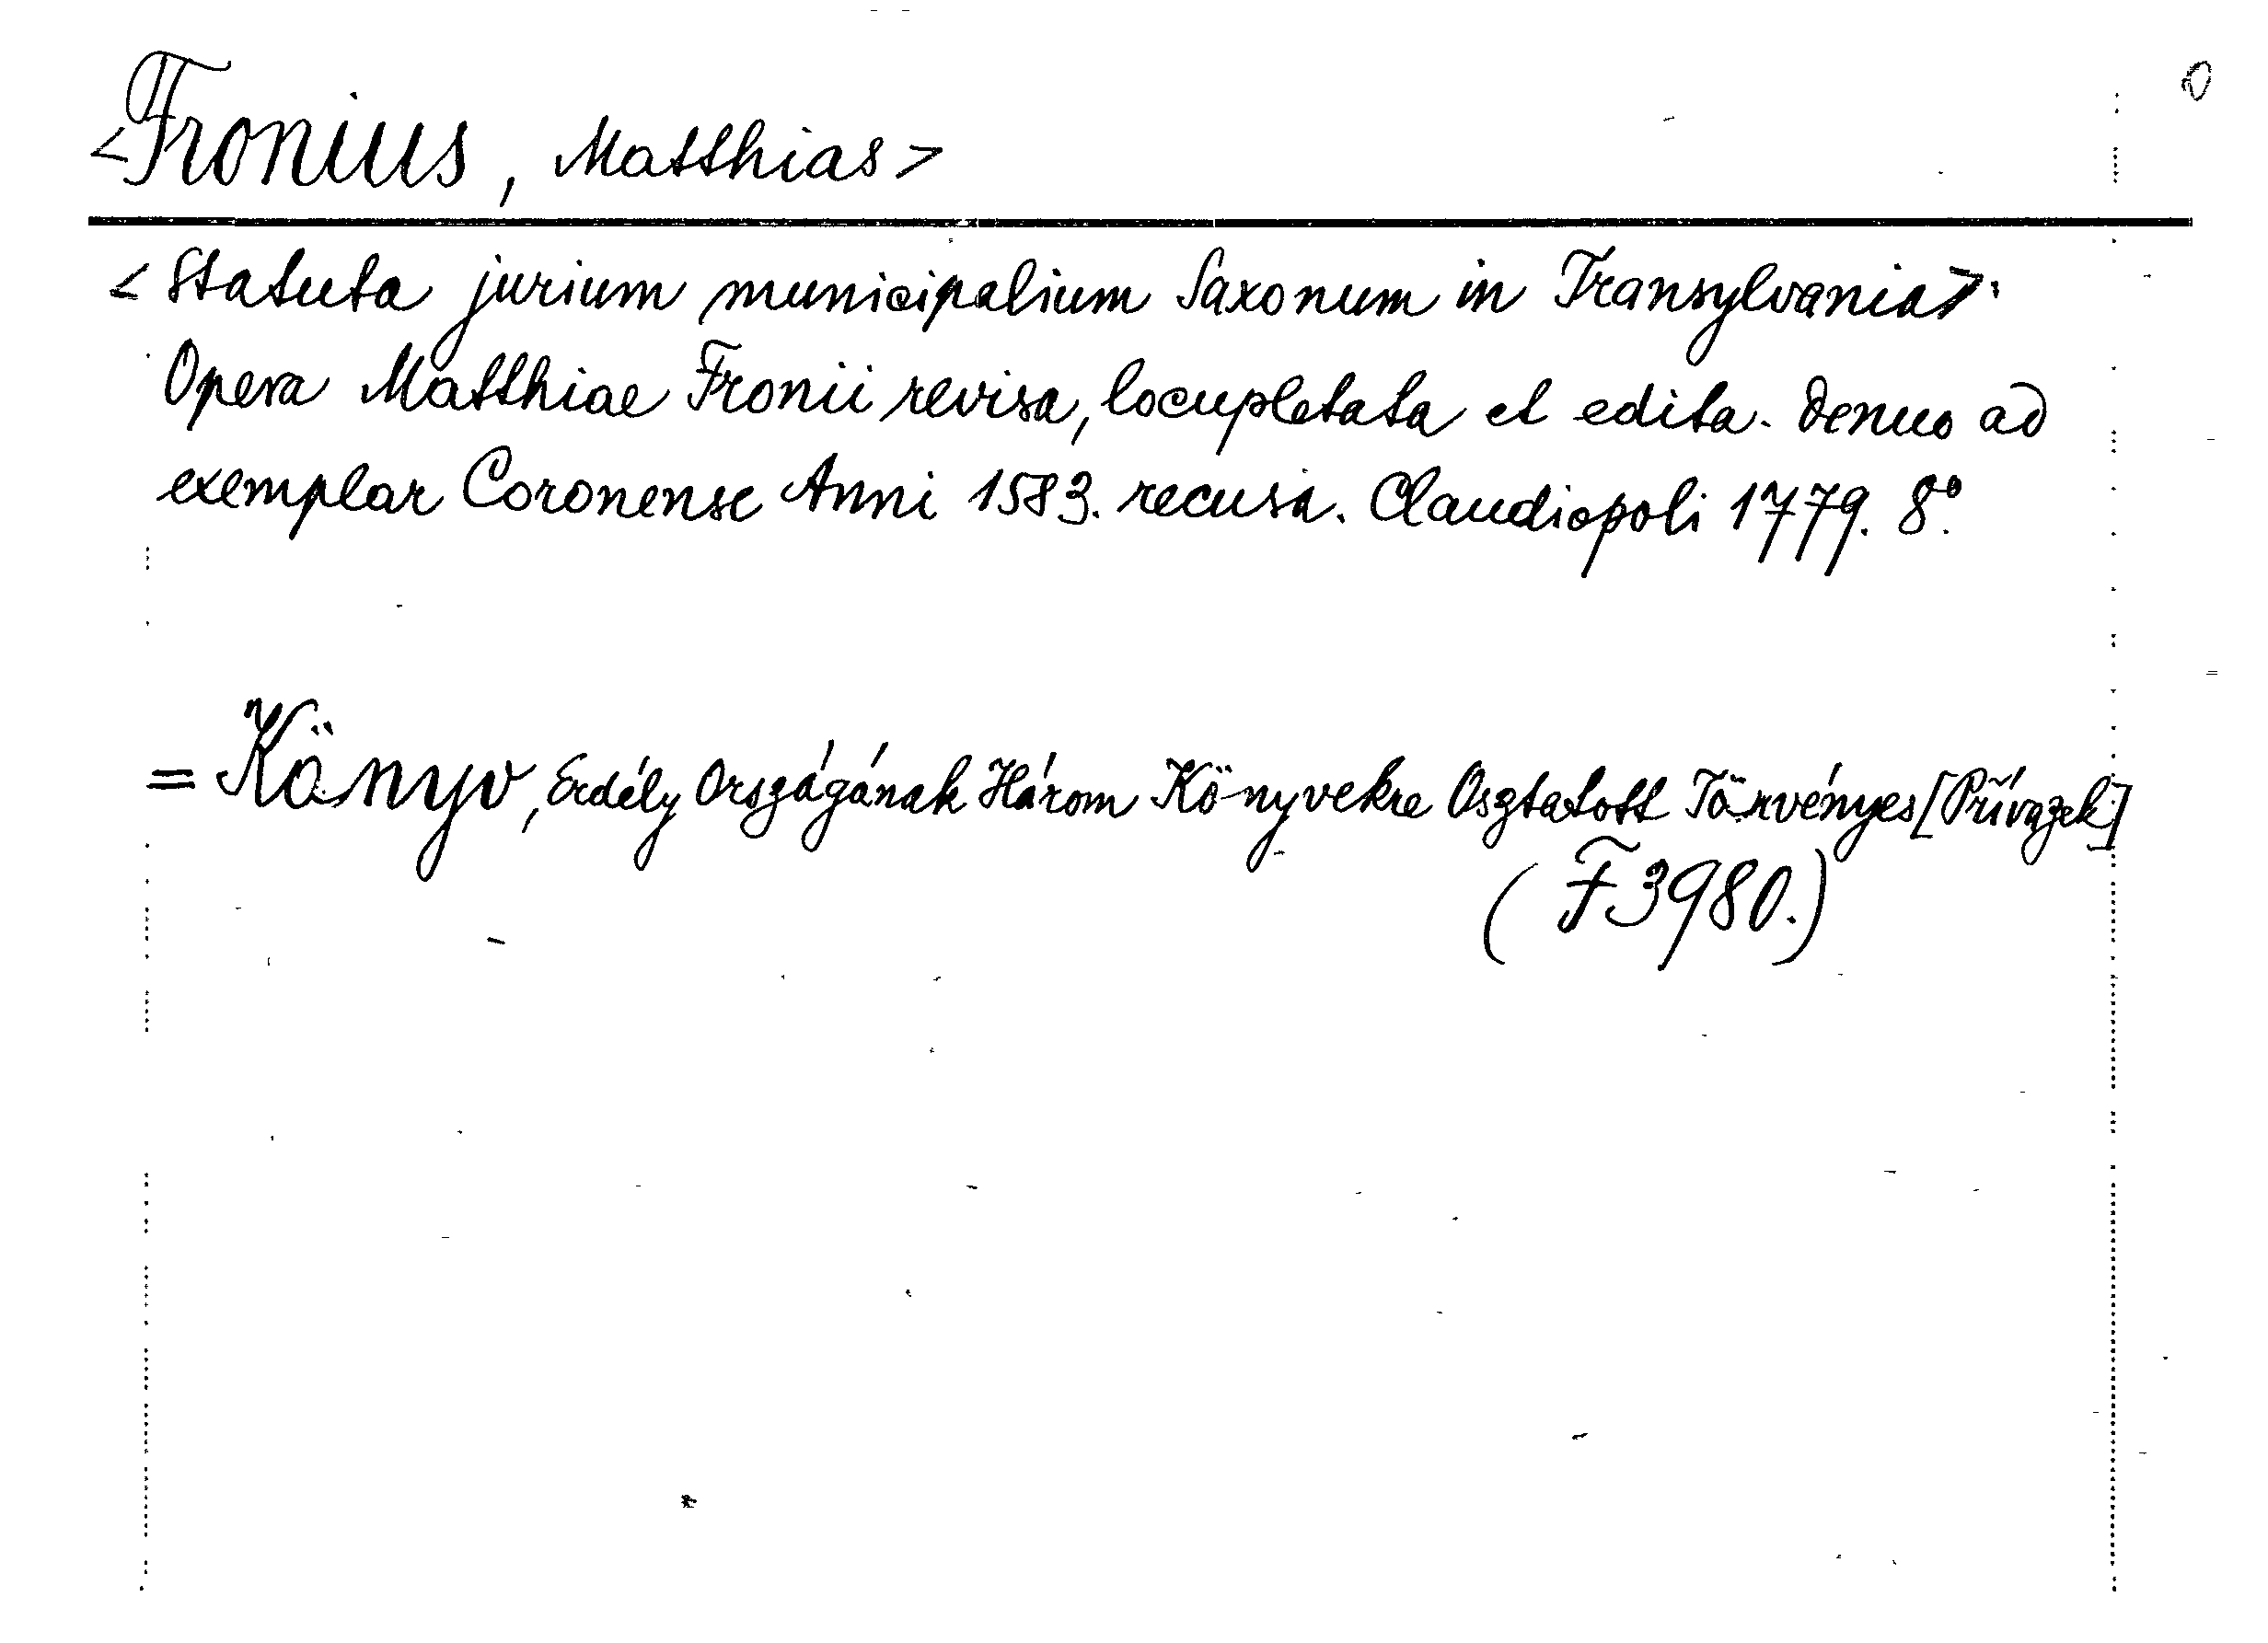 <Fronius, Matthias>
<Statuta jurium municipalium Saxonum in Transylvania>.
Opera Matthiae Fronii revisa, locupletata et edita. Denuo ad
exemplar Coronense Anni 1583. recusa. Claudiopoli 1779. 8°.
= Könyv, Erdély Országának Három Könyvekre Osztatott Törvényes [Přívazek]
(F 3980.)